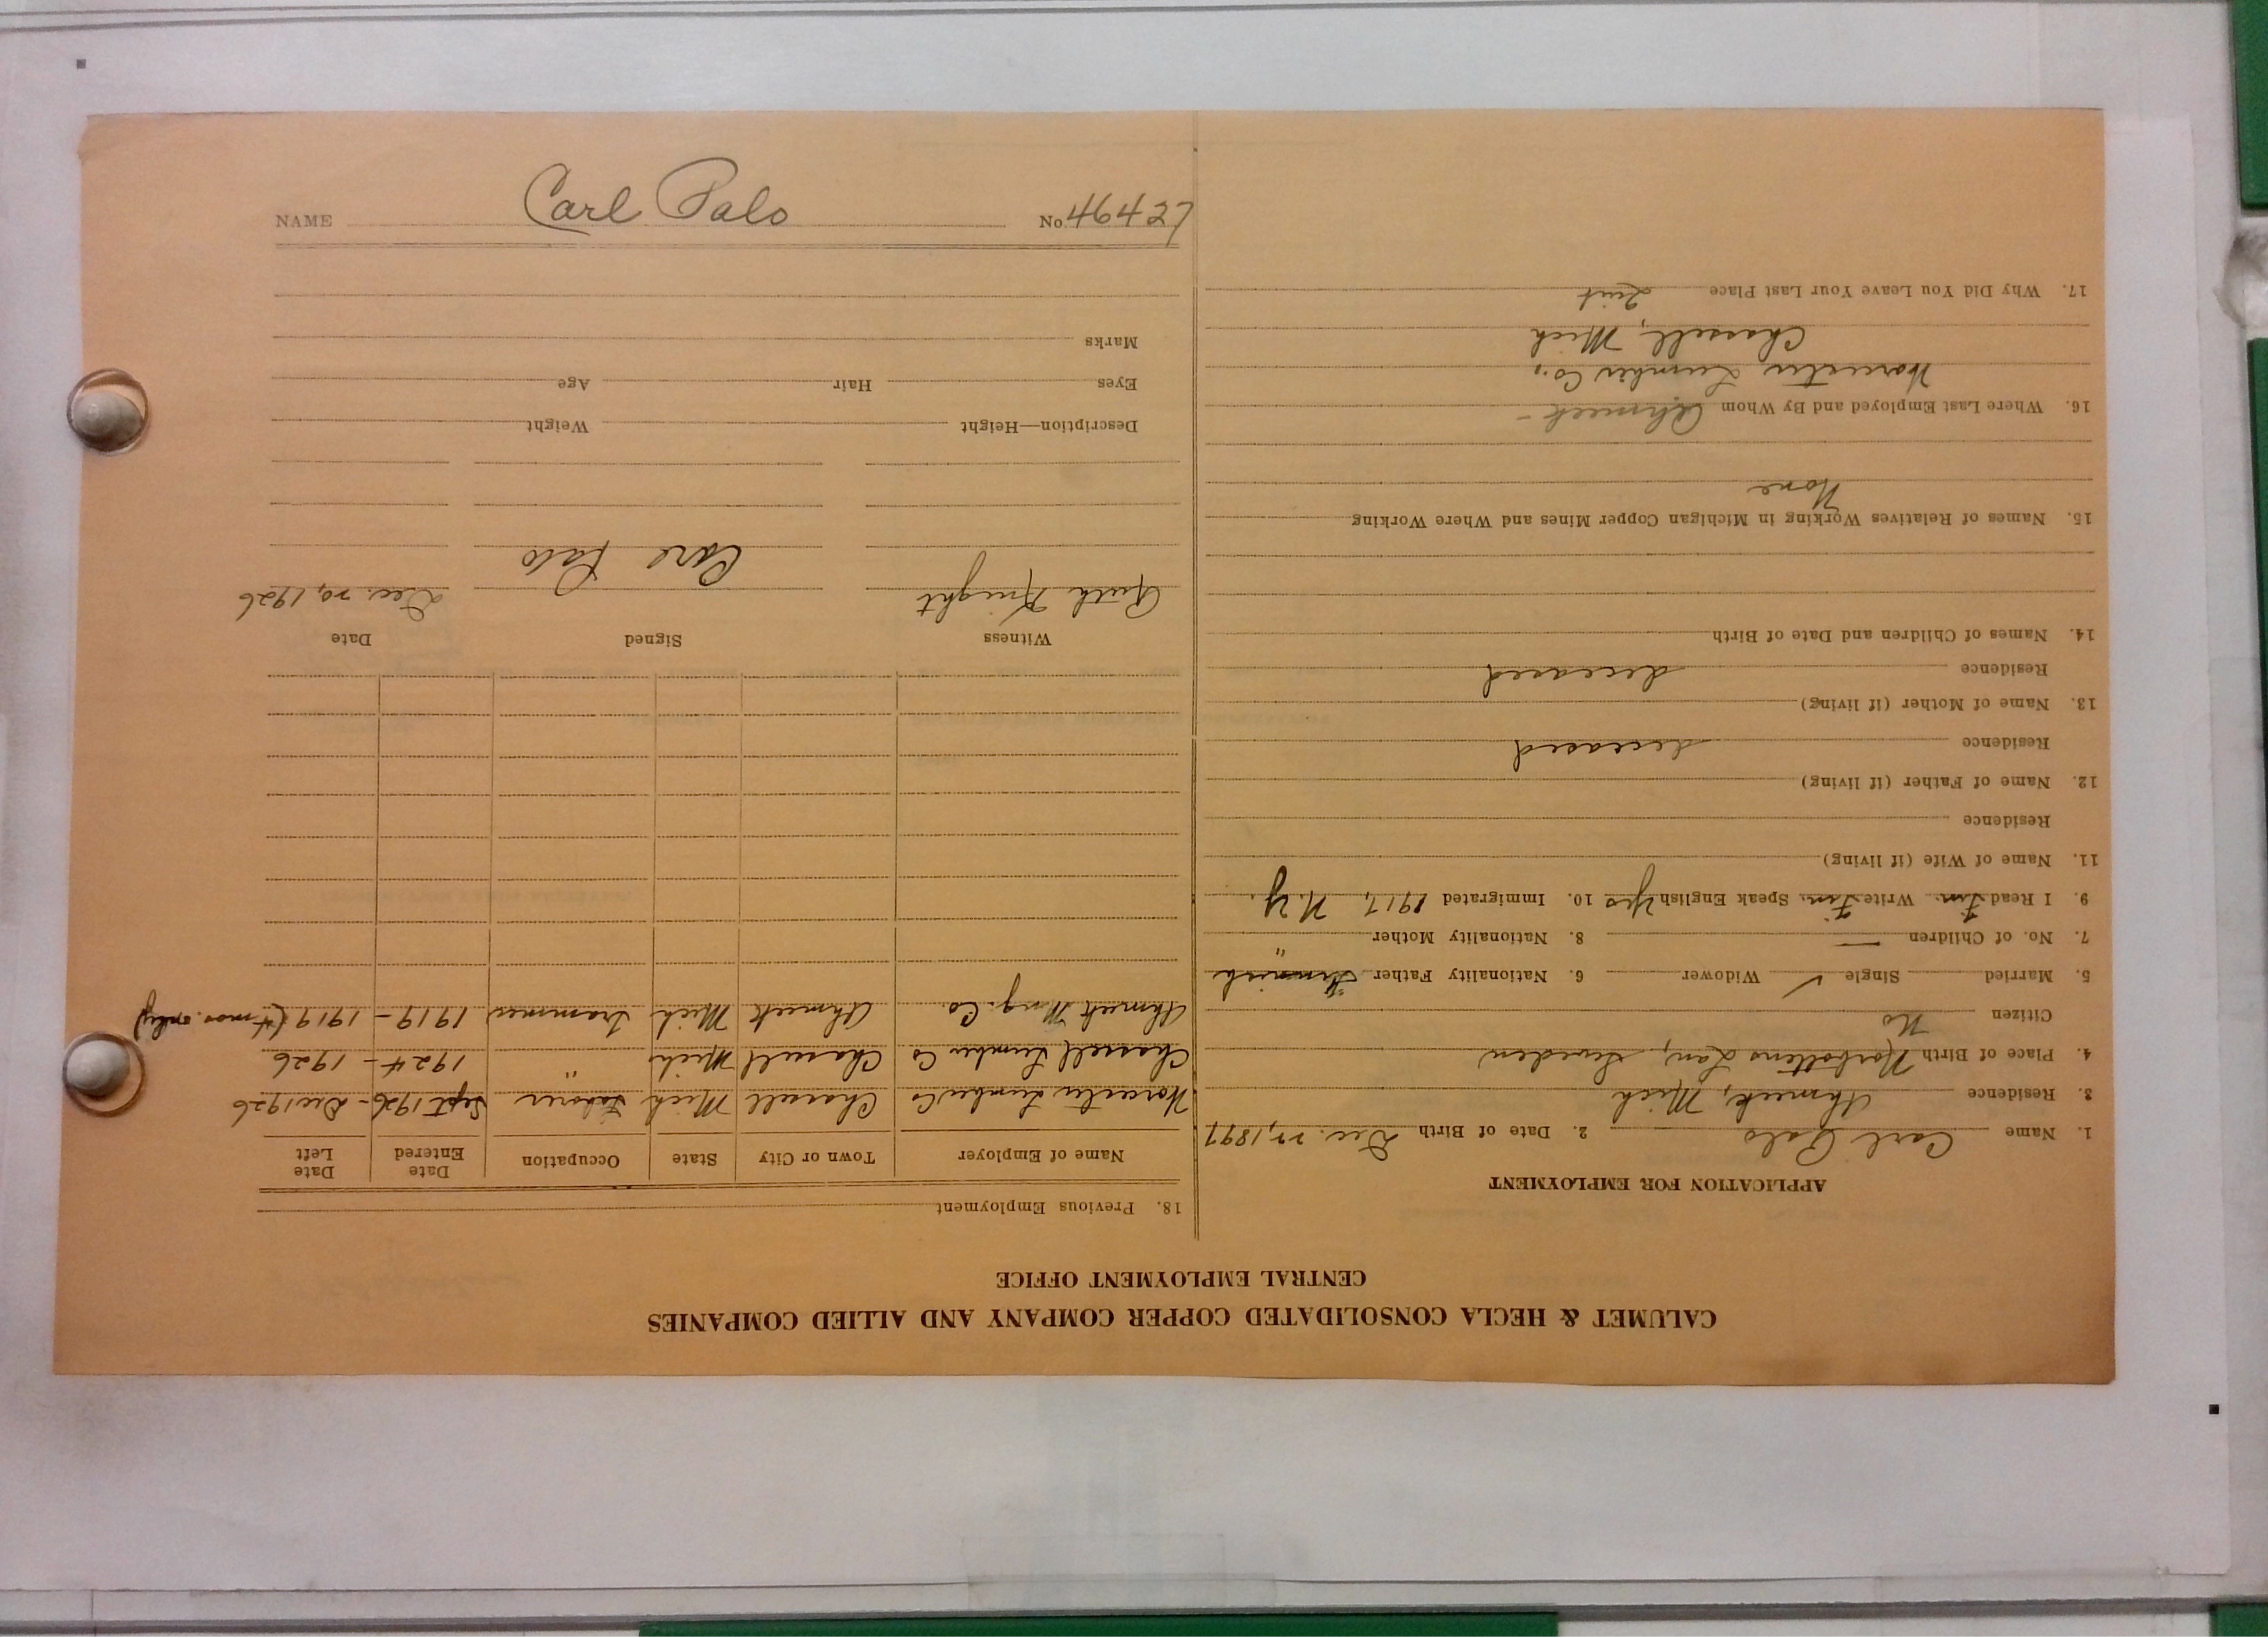 NAME Carl Palo No. 46427
CALUMET & HECLA CONSOLIDATED COPPER COMPANY AND ALLIED COMPANIES
CENTRAL EMPLOYMENT OFFICE
APPLICATION FOR EMPLOYMENT
1. Name Carl Palo 2. Date of Birth Dec. 27, 1897
3. Residence Ahmeek, Mich
4. Place of Birth Norbottens Lan, Sweden
Citizen No
5. Married Single ✓ Widower 6. Nationality Father Finnish
7. No. of Children — 8. Nationality Mother "
9. I Read Fin. Write Fin. Speak English Yes 10. Immigrated 1917, N.Y.
11. Name of Wife (if living)
Residence
12. Name of Father (if living)
Residence deceased
13. Name of Mother (if living)
Residence deceased
14. Names of Children and Date of Birth
15. Names of Relatives Working in Michigan Copper Mines and Where Working
None
16. Where Last Employed and By Whom Ahmeek -
Worcester Lumber Co.,
Chassell, Mich
17. Why Did You Leave Your Last Place Quit
18. Previous Employment
Name of Employer Town or City State Occupation Date Entered Date Left
Worcester Lumber Co Chassell Mich Laborer Sept 1926 - Dec 1926
Chassell Lumber Co Chassell Mich " 1924 - 1926
Ahmeek Mng. Co. Ahmeek Mich trammer 1919 - 1919 (4 mos. only)
Witness Signed Date
Ruth Knight Carl Palo Dec. 20, 1926
Description—Height Weight
Eyes Hair Age
Marks